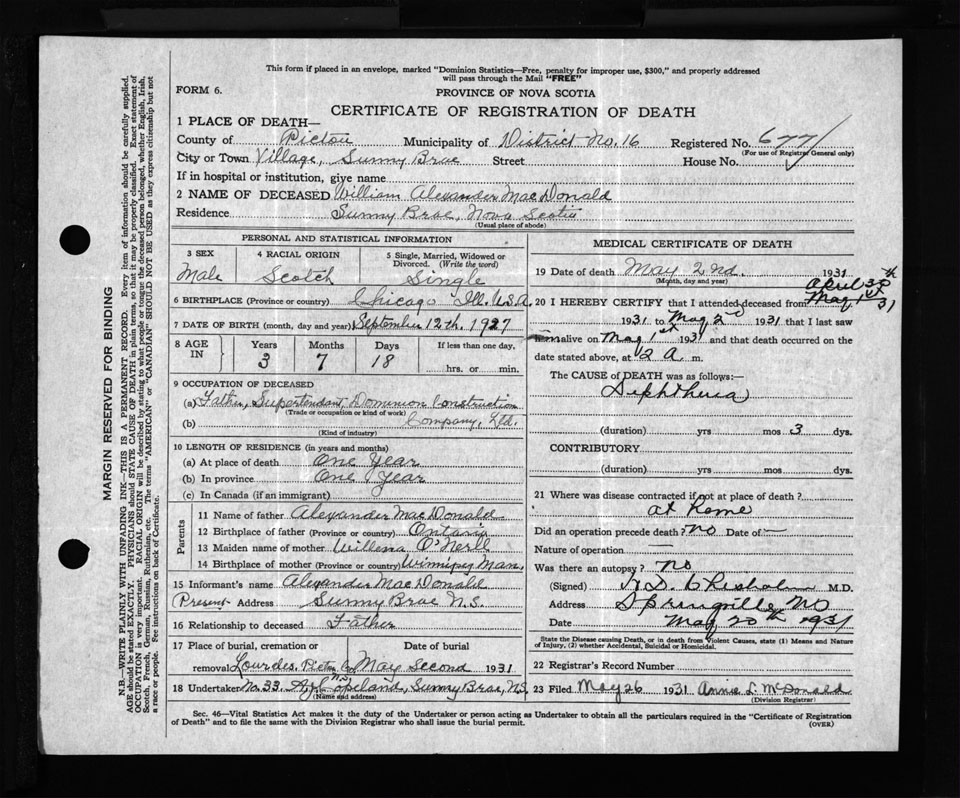 This form if placed in an envelope, marked "Dominion Statistics—Free, penalty for improper use, $300," and properly addressed
will pass through the Mail "FREE"
FORM 6.
PROVINCE OF NOVA SCOTIA
CERTIFICATE OF REGISTRATION OF DEATH
1 PLACE OF DEATH—
County of Pictou Municipality of District No. 16 Registered No. 677
(For use of Registrar General only)
City or Town Village, Sunny Brae Street House No.
If in hospital or institution, give name
2 NAME OF DECEASED William Alexander MacDonald
Residence Sunny Brae, Nova Scotia
(Usual place of abode)
PERSONAL AND STATISTICAL INFORMATION
3 SEX 4 RACIAL ORIGIN 5 Single, Married, Widowed or
Divorced. (Write the word)
Male Scotch Single
6 BIRTHPLACE (Province or country) Chicago Ill. U.S.A.
7 DATE OF BIRTH (month, day and year) September 12th. 1927
8 AGE IN Years Months Days If less than one day,
3 7 18 hrs. or min.
9 OCCUPATION OF DECEASED
(a) Father, Supertendant, Dominion Construction
(Trade or occupation or kind of work)
(b) Company, Ltd.
(Kind of industry)
10 LENGTH OF RESIDENCE (in years and months)
(a) At place of death One Year
(b) In province One Year
(c) In Canada (if an immigrant)
Parents
11 Name of father Alexander MacDonald
12 Birthplace of father (Province or country) Ontario
13 Maiden name of mother Willena O'Neill
14 Birthplace of mother (Province or country) Winnipeg Man.
15 Informant's name Alexander MacDonald
Present Address Sunny Brae N.S.
16 Relationship to deceased Father
17 Place of burial, cremation or Date of burial
removal Lourdes, Pictou Co. N.S. May Second 1931
18 Undertaker No. 33. Copeland, Sunny Brae, N.S.
(Name and address)
MEDICAL CERTIFICATE OF DEATH
19 Date of death May 2nd. 1931
(Month, day and year)
April 30th
20 I HEREBY CERTIFY that I attended deceased from May 1st 31
1931 to May 2nd 1931 that I last saw
alive on May 1st 1931 and that death occurred on the
date stated above, at 2 A m.
The CAUSE of DEATH was as follows:—
Diphtheria
(duration) yrs mos 3 dys.
CONTRIBUTORY
(duration) yrs mos dys.
21 Where was disease contracted if not at place of death?
at Home
Did an operation precede death? no Date of —
Nature of operation —
Was there an autopsy? no
(Signed) Chisholm M.D.
Address Springville, NS
Date May 20th 1931
State the Disease causing Death, or in death from Violent Causes, state (1) Means and Nature
of Injury, (2) whether Accidental, Suicidal or Homicidal.
22 Registrar's Record Number
23 Filed May 26 1931 Annie L. McDonald
(Division Registrar)
Sec. 46—Vital Statistics Act makes it the duty of the Undertaker or person acting as Undertaker to obtain all the particulars required in the "Certificate of Registration
of Death" and to file the same with the Division Registrar who shall issue the burial permit.
(OVER)
MARGIN RESERVED FOR BINDING
N.B.—WRITE PLAINLY WITH UNFADING INK—THIS IS A PERMANENT RECORD. Every item of information should be carefully supplied.
AGE should be stated EXACTLY. PHYSICIANS should STATE CAUSE OF DEATH in plain terms, so that it may be properly classified. Exact statement of
OCCUPATION is very important. RACIAL ORIGIN will be described by stating to what people or tongue the deceased person belonged, whether English, Irish,
Scotch, French, German, Russian, Ruthenian, etc. The terms "AMERICAN" or "CANADIAN" SHOULD NOT BE USED as they express citizenship but not
a race or people. See instructions on back of Certificate.